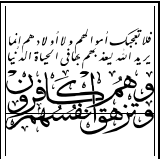 فلا تعجبك أموالهم ولا أولادهم إنما
يريد الله ليعذبهم بها في الحياة الدنيا
وتزهق أنفسهم
وهم كافرون